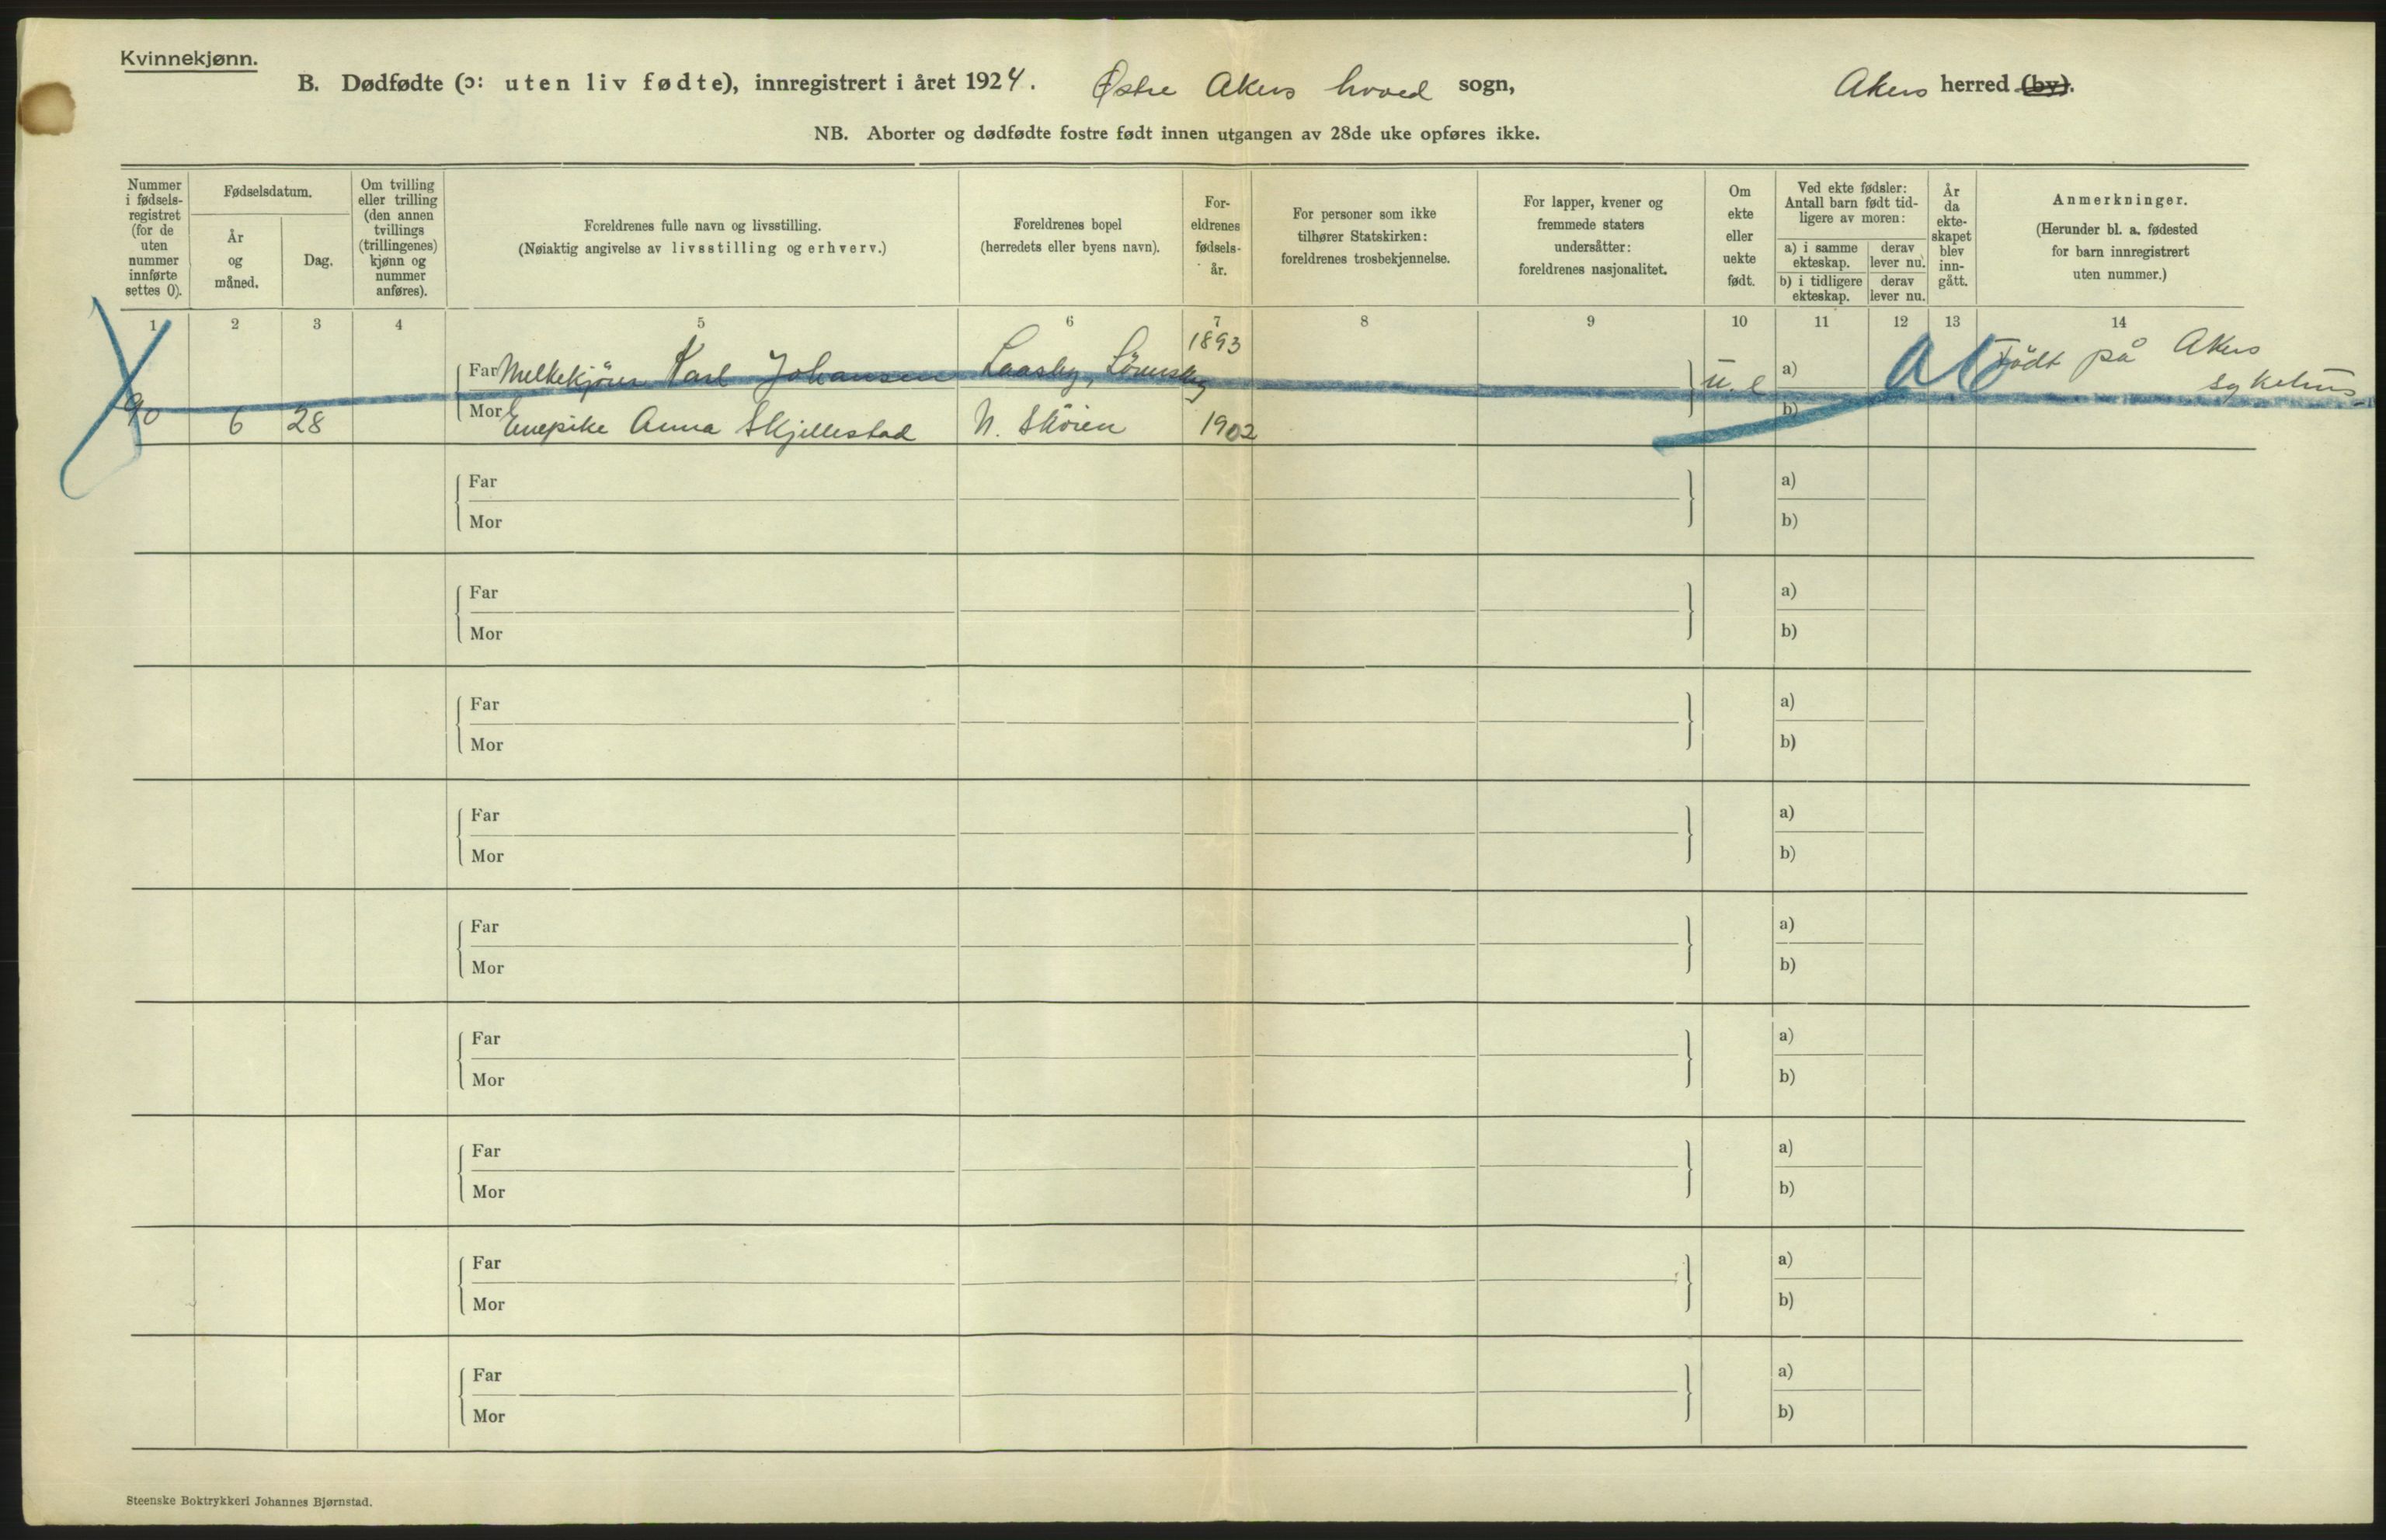 Kvinnekjønn.
B. Dødfødte (ɔ: uten liv fødte), innregistrert i året 1924. Østre Akers hoved sogn, Akers herred (by).
NB. Aborter og dødfødte fostre født innen utgangen av 28de uke opføres ikke.
Nummer
i fødsels-
registret
(for de
uten
nummer
innførte
settes 0).
Fødselsdatum.
År
og
måned.
Dag.
Om tvilling
eller trilling
(den annen
tvillings
(trillingenes)
kjønn og
nummer
anføres).
Foreldrenes fulle navn og livsstilling.
(Nøiaktig angivelse av livsstilling og erhverv.)
Foreldrenes bopel
(herredets eller byens navn).
For-
eldrenes
fødsels-
år.
For personer som ikke
tilhører Statskirken:
foreldrenes trosbekjennelse.
For lapper, kvener og
fremmede staters
undersåtter:
foreldrenes nasjonalitet.
Om
ekte
eller
uekte
født.
Ved ekte fødsler:
Antall barn født tid-
ligere av moren:
a) i samme
ekteskap.
derav
lever nu.
b) i tidligere
ekteskap.
derav
lever nu.
År
da
ekte-
skapet
blev
inn-
gått.
Anmerkninger.
(Herunder bl. a. fødested
for barn innregistrert
uten nummer.)
1 2 3 4 5 6 7 8 9 10 11 12 13 14
Far Melkekjører Karl Johansen Laasby, Sörumsby 1893 u. e a) Födt på Akers
sykehus
90 6 28 Mor Enepike Anna Skjellestad N. Sköien 1902 b)
Far a)
Mor b)
Far a)
Mor b)
Far a)
Mor b)
Far a)
Mor b)
Far a)
Mor b)
Far a)
Mor b)
Far a)
Mor b)
Far a)
Mor b)
Far a)
Mor b)
Steenske Boktrykkeri Johannes Bjørnstad.